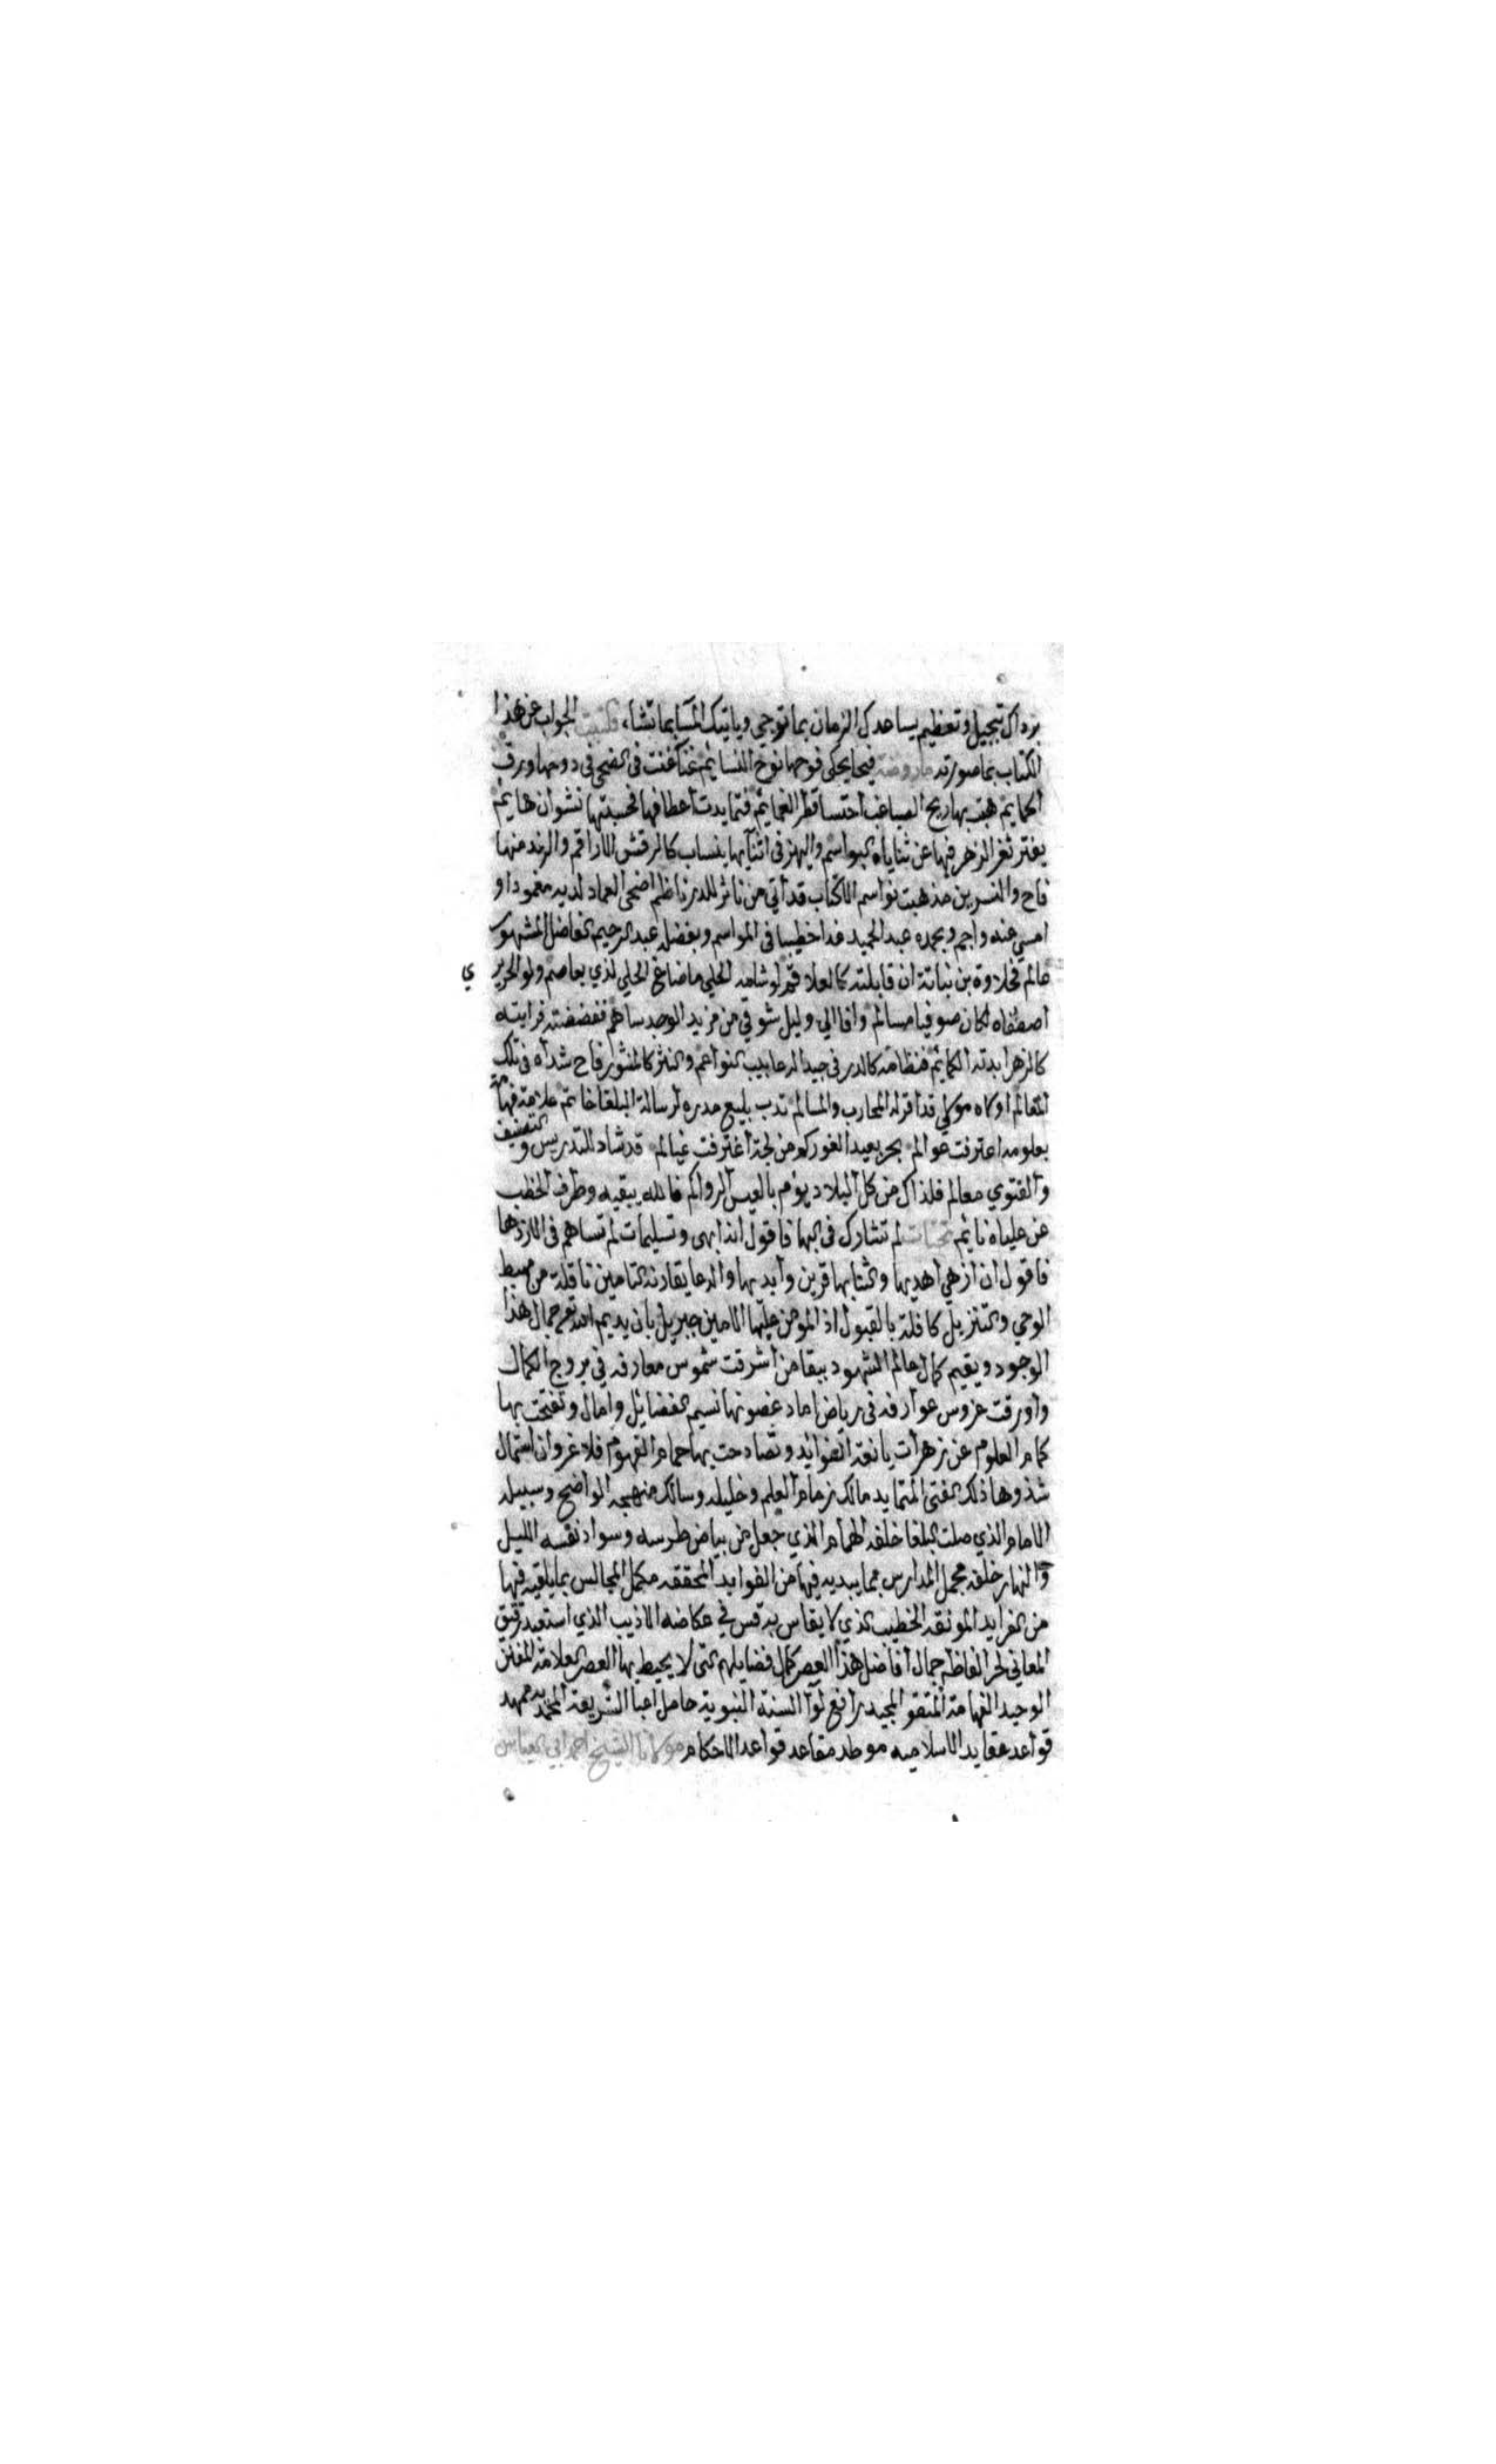 برداك تبجيل وتعظيم يساعدك الزمان بما ترجي وياتيك المسا بما تشاء فكتبت الجواب عن هذا
الكتاب بما صورته ما روضة فيحا يحكي فوحها نوح النسايم غنا غنت في الضحي في دوحها ورق
الحمايم هبت بها ريح الصبا غب احتسا قطر الغمايم فتمايدت اعطافها فحسبتها نشوان هايم
يفتر ثغر الزهر فيها عن ثناياه البواسم والنهر في اثنايها ينساب كالرقش الاراقم والرند منها
فاح والنسرين مذ هبت نواسم الاكتاب قد اتي من ناثر للدر ناظم اضحي العماد لديه مغمودا و
امسي عنه واجم وبحمده عبد الحميد غدا خطيبا في المواسم وبفضله عبد الرحيم الفاضل المشهور
عالم فحلاوة بن نباتة ان قابلته كالعلاقم لو شامه الحلي ما ضاغ الحلي لذي معاصم ولو الحرير ي
اصطفاه لكان صوفيا مسالم وافا الي وليل شوقي من مزيد الوجد ساهم ففضضته فرايته
كالزهر ابدته الكمايم فنظامه كالدر في جيد الرعابيب النواعم والنثر كالمنثور فاح شداه في تلك
المعالم اولاه مولي قد اقر له المحارب والمسالم ندب بليع مدره لرسالة البلغا خاتم علامة فهامة
بعلومه اعترفت عوالم بحر بعيد الغور كم من لجة اغترفت غيالم قد شاد للتدريس والتصنيف
والفتوي معالم فلذاك من كل البلاد يؤم بالعيس الرواكم فالله يبقيه وطرف الخطب
عن علياه نايم تحيات لم تشارك في البها فاقول انذا بهي وتسليمات لم تساهم في الازدها
فاقول ان ازهي اهديها والثنا بها قرين وابديها والدعا يقارنه التامين ناقلة من مهبط
الوحي والتنزيل كافلة بالقبول اذ المومن عليها الامين جبريل بان يديم الله تعم جمال هذا
الوجود ويقيم كمال عالم الشهود ببقا من اشرقت شموس معارفه في بروج الكمال
واورقت غروس عوارفه في رياض اماد غصونها نسيم الفضايل وامال وتفتحت بها
كمام العلوم عن زهرات يانعة الفوايد وتصادحت بها حمام الفهوم فلا غرو ان استمال
شذوها ذلك الفتي المتمايد مالك زمام العلم وخليله وسالك منهجه الواضح وسبيله
الامام الذي صلت البلغا خلفه الهمام الذي جعل من بياض طرسه وسواد نقسه الليل
والنهار خلفه مجمل المدارس بما يبديه فيها من الفوايد المحققه مكمل المجالس بما يلقيه فيها
من الفرايد المونقه الخطيب الذي لا يقاس به قس في عكاضه الاديب الذي استعبد رقيق
المعاني لحر الفاظه جمال افاضل هذا العصر كمال فضايلهم التي لا يحيط بها العصر العلامة المفنن
الوحيد الفهامة المتقن المجيد رافع لوآ السنة النبوية حامل اعبا الشريعة المحمديه ممهد
قواعد عقايد الاسلاميه موطد مقاعد قواعد الاحكام مولانا الشيخ احمد ابي العباس